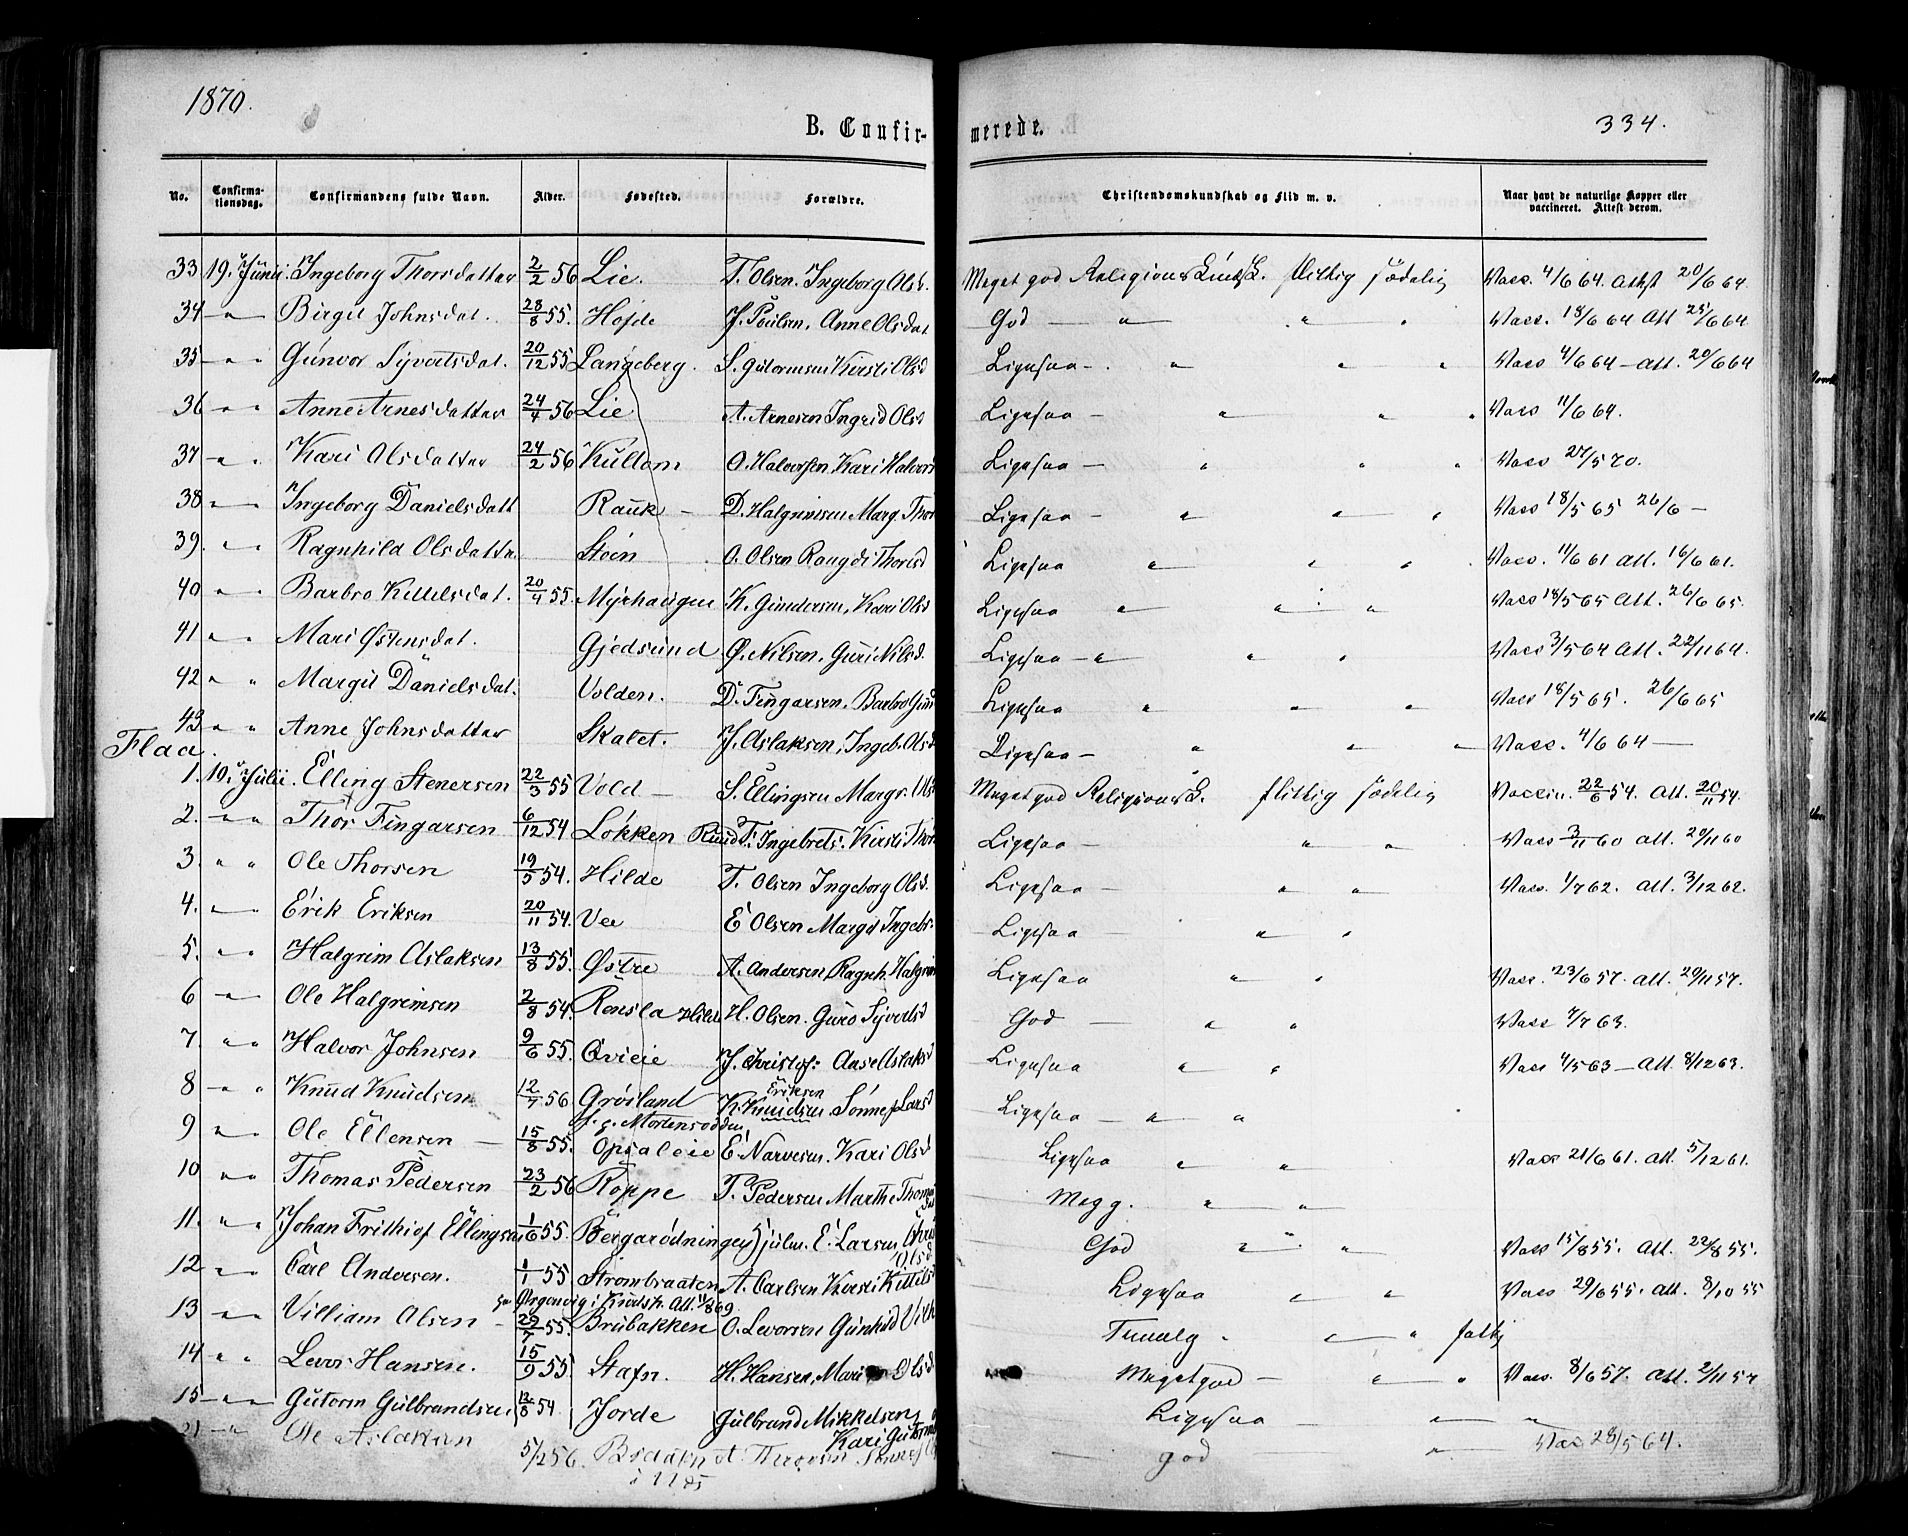 1870.
334.
B. Confir-
merede.
No. Confirma-tionsdag. Confirmandens fulde Navn. Alder. Fødested. Forældre. Christendomskundskab og Flid m. v. Naar havt de naturlige Kopper eller vaccineret. Attest derom.
33 19. Junii. Ingeborg Thorsdatter 2/2 56 Lie. T. Olsen. Ingeborg Olsd. Meget god Religions Kundsk. flittig sædelig Vacc. 4/6 64. Attst 20/6 64
34 " Birgit Johnsdat. 28/8 55. Hofde J. Poulsen, Anne Olsdat God " " " Vacc. 18/6 64 Att 25/6 64
35 " " Gunvor Syvertsdat. 20/12 55 Langeberg. S. Gutormsen Kirsti Olsd Ligesaa " " " Vacc 4/6 64 - att. 20/6 64
36 " " Anne Arnesdatter 24/4 56 Lie A. Arnesen Ingrid Olsd Ligesaa " " " Vacc 11/6 64.
37 " " Kari Olsdatter 24/2 56 Kullom O. Halvorsen Kari Halvors Ligesaa " " " Vacc 27/5 70.
38 " Ingeborg Danielsdatt Rauk - D. Halgrimsen Marg. Thor Ligesaa " " " Vacc 18/5 65 26/6 -
39. " " Ragnhild Olsdatte. Stein O. Olsen Rangdi Thorisd Ligesaa " " " Vacc. 11/6 61 att. 16/6 61.
40 " Barbro Kittelsdat. 20/4 55. Myrhaugen K. Gundersen, Kari Olsd Ligesaa " " " Vacc 18/5 65 Att. 26/6 65.
41 " " Mari Østensdat. Gjedsund Ø. Nilsen. Guri Nilsd. Ligesaa " " " Vacc 3/5 64 Att. 22/11 64.
42 " " Margit Danielsdat. Volden. D. Fingarsen. Barbro Gund Ligesaa " " " Vacc 18/5 65. 26/6 65
43 " " Anne Johnsdatter Skalet. J. Aslaksen, Ingeb. Olsd Ligesaa " " " Vacc. 4/6 64 -
Flaa.
1. 10. Julii. Elling Stenersen 22/3 55 Vold - S. Ellingsen Margr. Ols Meget god Religions K. flittig sædelig Vaccin. 22/6 54. Att. 20/11 54.
2. " " Thor Fingarsen 6/12 54 Løkken Ruud F. Ingebrets. Kirsti Thor Ligesaa " " Vacc 3/11 60 Att. 20/11 60
3. " " Ole Thorsen 19/5 54. Hilde T. Olsen Ingeborg Olsd. Ligesaa " " Vacc. 1/7 62. Att. 3/12 62.
4. " Erik Eriksen 20/11 54. Vee E Olsen Margit Ingebr. Ligesaa " "
5. " " Halgrim Aslaksen 13/8 55. Østre A. Andersen Ragnh. Halgrim Ligesaa " " Vacc. 23/6 57. Att. 20/11 57.
6 " Ole Halgrimsen 2/8 54. Rensla Hilde H. Olsen. Guro Syvertsd God " " Vacc 4/7 63.
7. " " Halvor Johnsen 9/6 55. Qvieie J. Christof: Aase Aslaksd Ligesaa " " Vacc 4/5 63 - Att. 8/12 63.
8 " " Knud Knudsen 12/7 56 Grøiland K. Knudsen Eriksen Sønnef Larsd Ligesaa " "
f. g. Mortensodden
9 " Ole Ellensen - 15/8 55. Opsaleie E. Narvesen. Kari Olsd Ligesaa " " Vacc 21/6 61. Att. 5/12 61.
10 " " Thomas Pedersen 23/2 56 Roppe P. Pedersen Marthe Thomas Megg. " "
11. " " Johan Frithiof Ellingsen 1/6 55. Bergarødningen E. Larsen Olsd. God " " Vacc 15/8 55. Att. 22/8 55.
12 " Carl Andersen. 1/1 55 Strømbraaten A. Carlsen Kirsti Kittils Ligesaa " " Vacc 29/6 55. Att. 8/10 55
13 " Villiam Olsen - 29/7 55. Brubakken O. Levorsen Gunhild Vilh " "
14 " " Levor Hansen. 15/9 55 Stafn. H. Hansen, Mari Olsd Megetgod - " " Vacc. 8/6 57. Att. 2/11 57
15 " Gutorm Gulbrandsen 12/8 54. Jorde Gulbrand Mikkelsen Kari Gutorms Ligesaa - " "
21 " Ole Aslaksen 5/2 56. Braaten A. god " Vac 28/5 64.